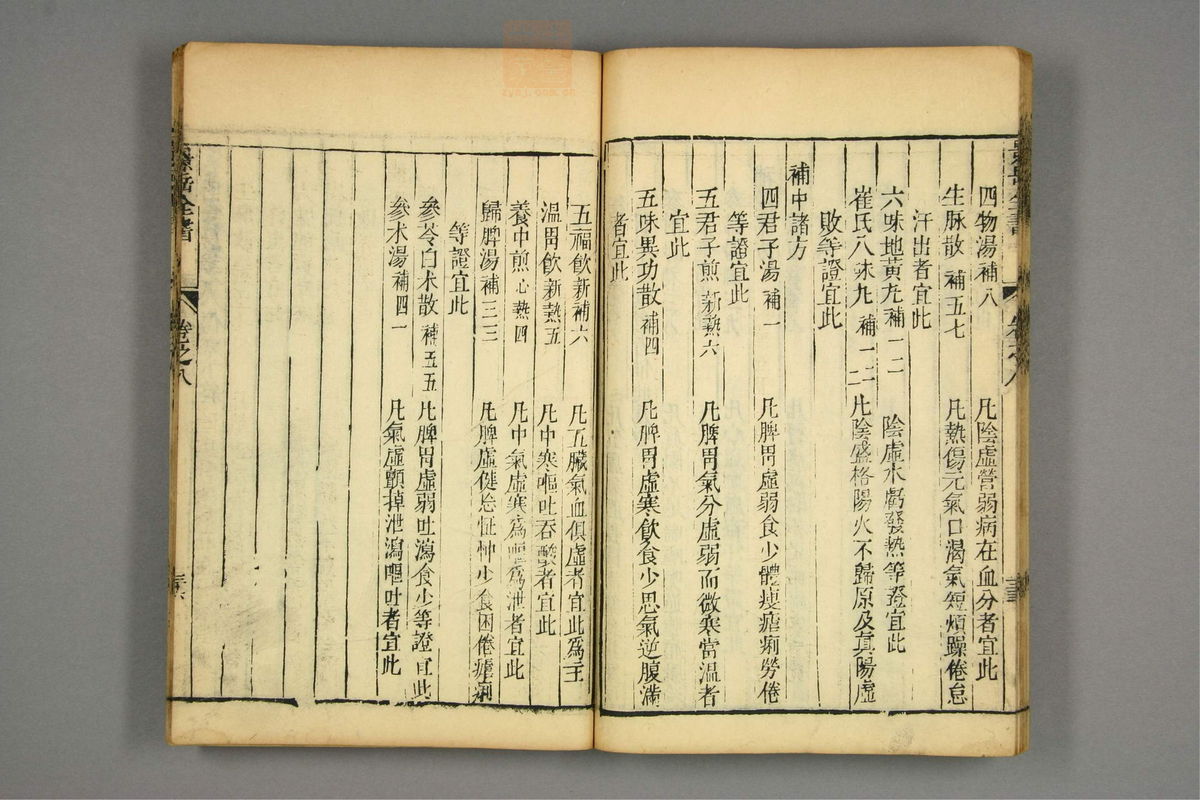 四物湯 補八 凡陰虛營弱病在血分者宜此
生脉散 補五七 凡熱傷元氣口渴氣短煩躁倦怠
汗出者宜此
六味地黃丸 補一二 陰虛水虧發熱等證宜此
崔氏八味丸 補一二一 凡陰盛格陽火不歸原及真陽虛
敗等證宜此
補中諸方
四君子湯 補一 凡脾胃虛弱食少體瘦瘧痢勞倦
等證宜此
五君子煎 新熱六 凡脾胃氣分虛弱而微寒當溫者
宜此
五味異功散 補四 凡脾胃虛寒飲食少思氣逆腹滿
者宜此
五福飲 新補六 凡五臟氣血俱虛者宜此為主
溫胃飲 新熱五 凡中寒嘔吐吞酸者宜此
養中煎 心熱四 凡中氣虛寒為嘔為泄者宜此
歸脾湯 補三三 凡脾虛健忘怔忡少食困倦瘧痢
等證宜此
參苓白朮散 補五五 凡脾胃虛弱吐瀉食少等證宜此
參朮湯 補四一 凡氣虛顫掉泄瀉嘔吐者宜此
景岳全書
卷之八
景岳全書
卷之八